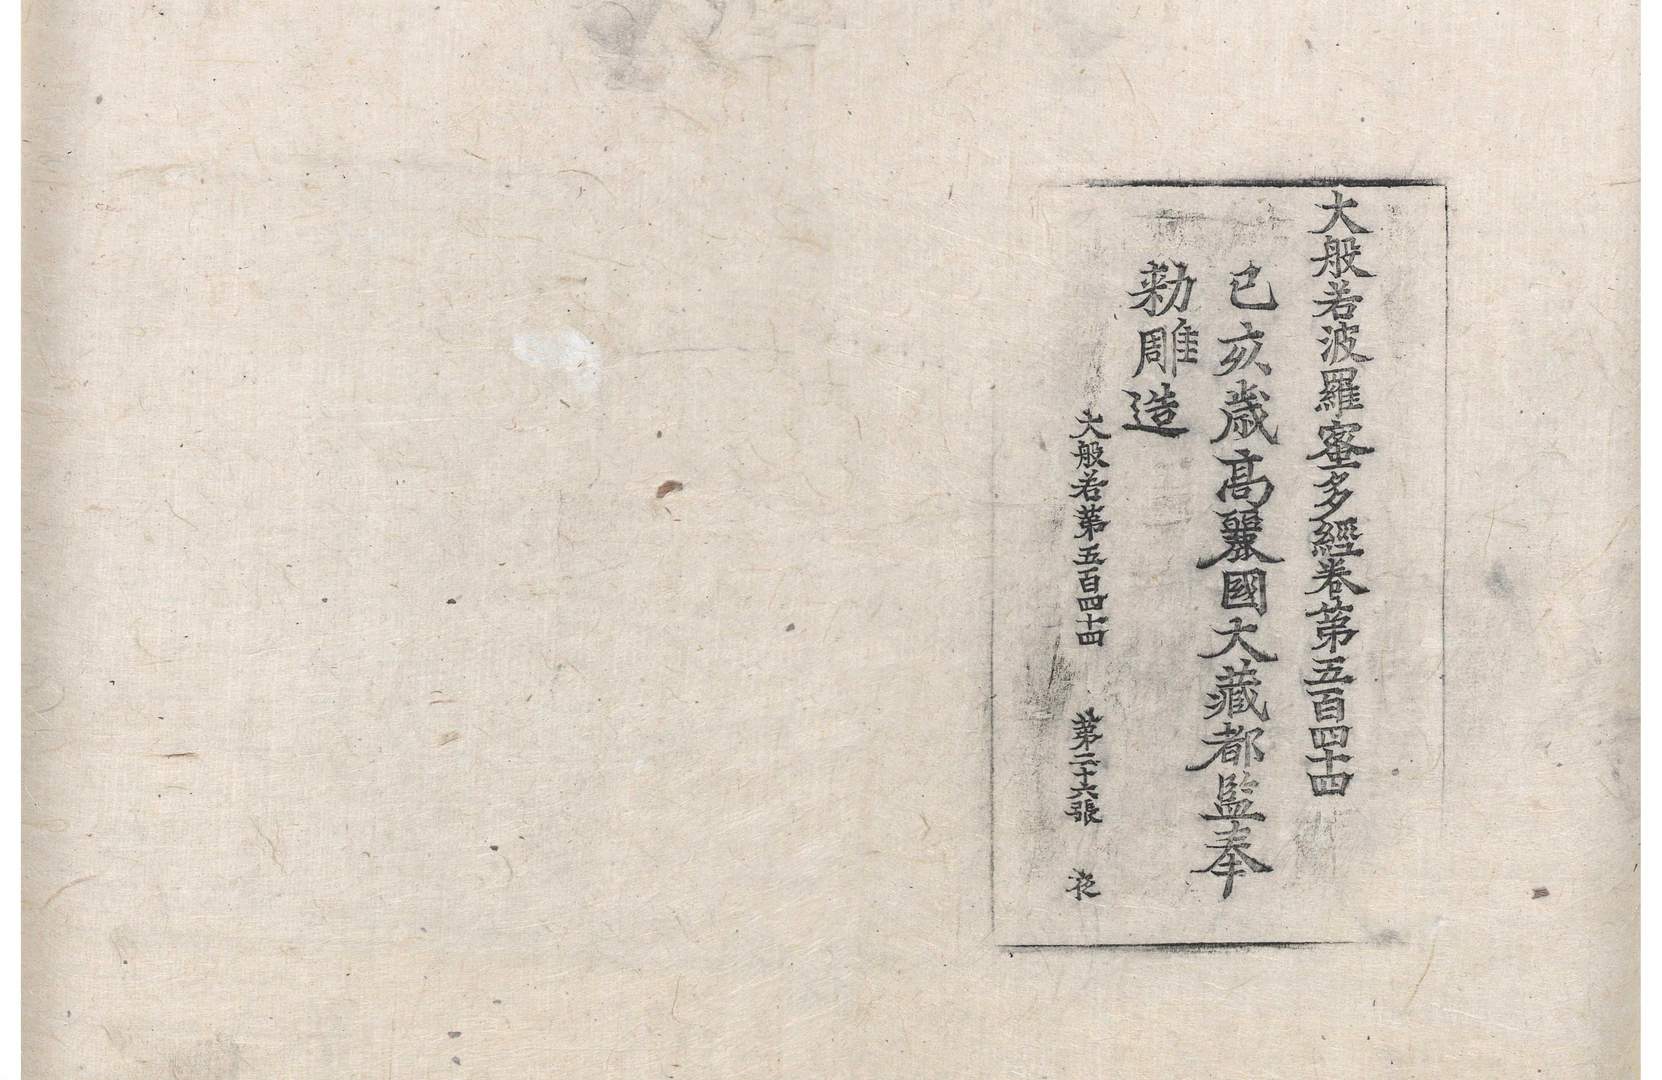 大般若波羅蜜多經卷第五百四十四
己亥歲高麗國大藏都監奉
勅雕造
大般若第五百四十四 第二十六張